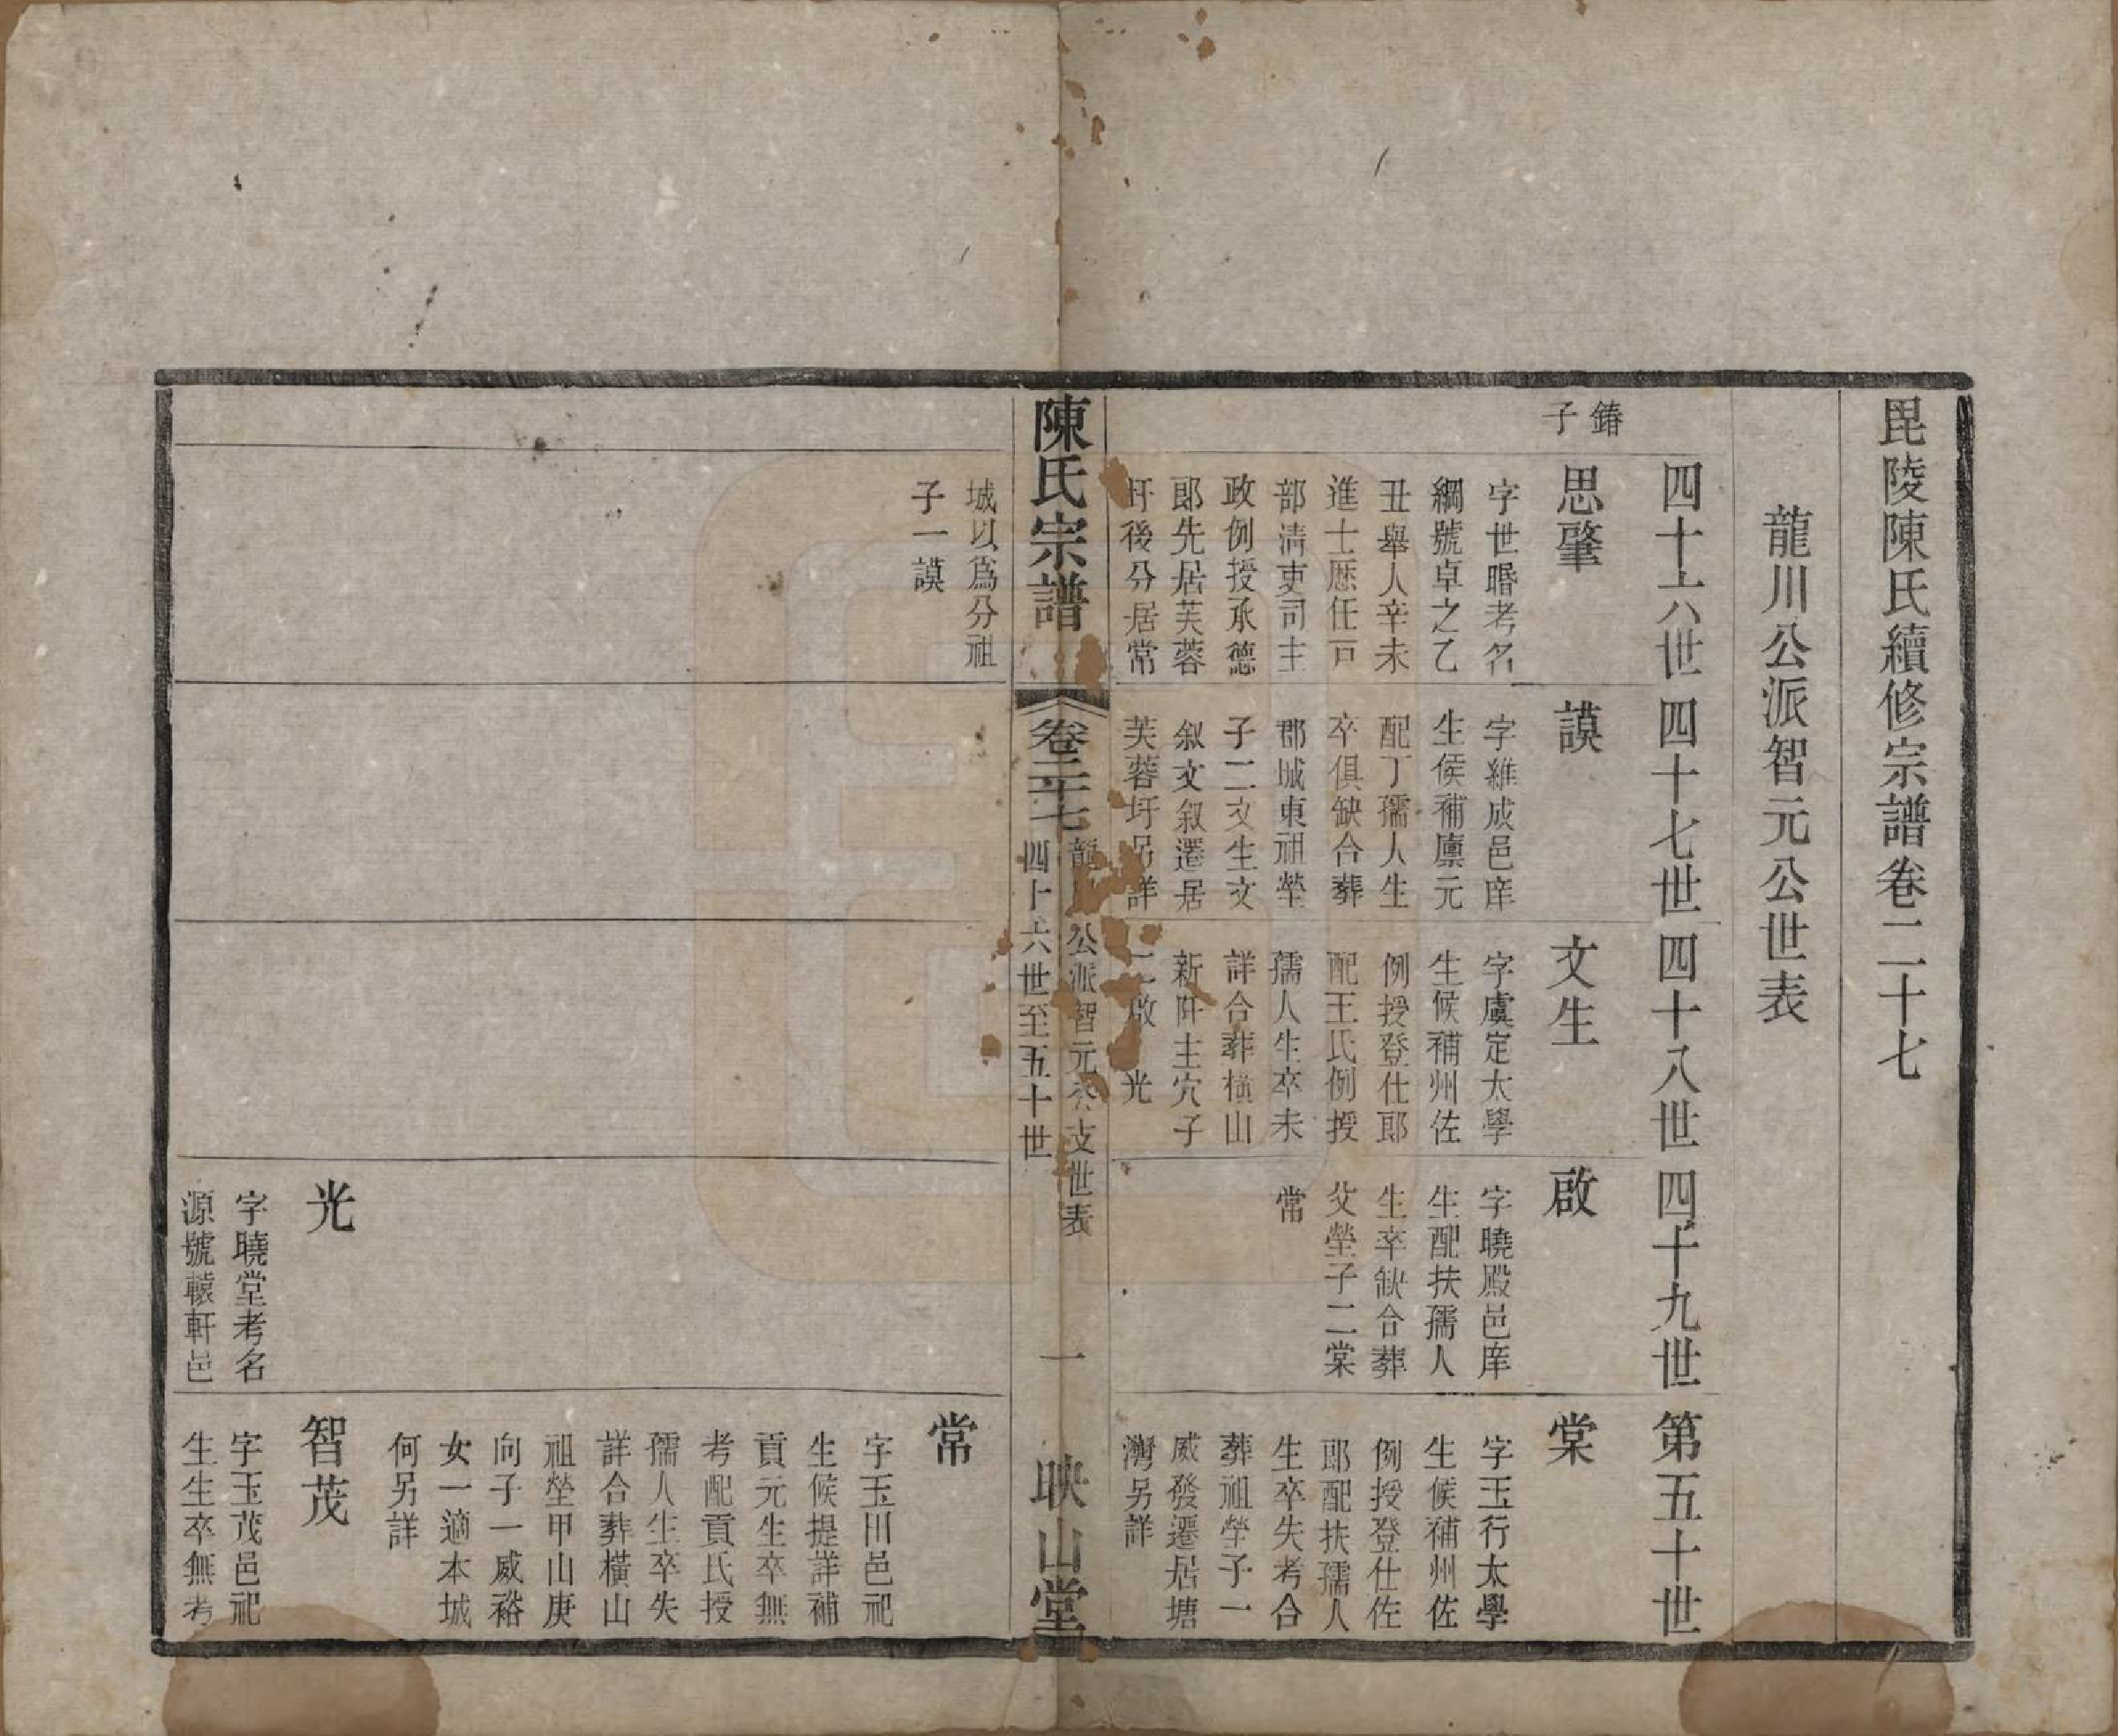 毘陵陳氏續修宗譜卷二十七
龍川公派智元公世表
四十六世
四十七世
四十八世
四十九世
第五十世
鏽
子
思肇
字世𣇄考名
綱號卓之乙
丑舉人辛未
進士歷任戸
部清吏司主
政例授承德
郎先居芙蓉
圩後分居常
謨
字維成邑庠
生候補廩元
配丁孺人生
卒俱缺合葬
郡城東祖塋
子二文生文
叙文叙遷居
芙蓉圩另詳
文生
字虞定太學
生候補州佐
例授登仕郎
配王氏例授
孺人生卒未
詳合葬橫山
新阡主穴子
二啟 光
啟
字曉殿邑庠
生配扶孺人
生卒缺合葬
父塋子二棠
常
棠
字玉行太學
生候補州佐
例授登仕佐
郎配扶孺人
生卒失考合
葬祖塋子一
威發遷居塘
灣另詳
陳氏宗譜
卷二十七
龍川公派智元公支世表
四十六世至五十世
一
映山堂
城以爲分祖
子一謨
常
字玉田邑祀
生候提詳補
貢元生卒無
考配貢氏授
孺人生卒失
詳合葬橫山
祖塋甲山庚
向子一威裕
女一適本城
何另詳
光
字曉堂考名
源號轅軒邑
智茂
字玉茂邑祀
生生卒無考